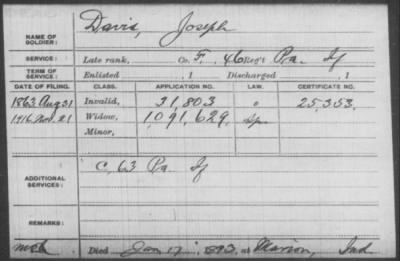 NAME OF SOLDIER: Davis, Joseph
SERVICE: Late rank, Co. F, 46 Reg't Pa. If
TERM OF SERVICE: Enlisted , 1 Discharged , 1
DATE OF FILING. CLASS. APPLICATION NO. LAW. CERTIFICATE NO.
1863 Aug 31 Invalid, 31,803 25,353
1916 Nov. 21 Widow, 1,091,629
Minor,
ADDITIONAL SERVICES: C, 63 Pa If
REMARKS:
Died Jan 17, 1893, at Marion, Ind